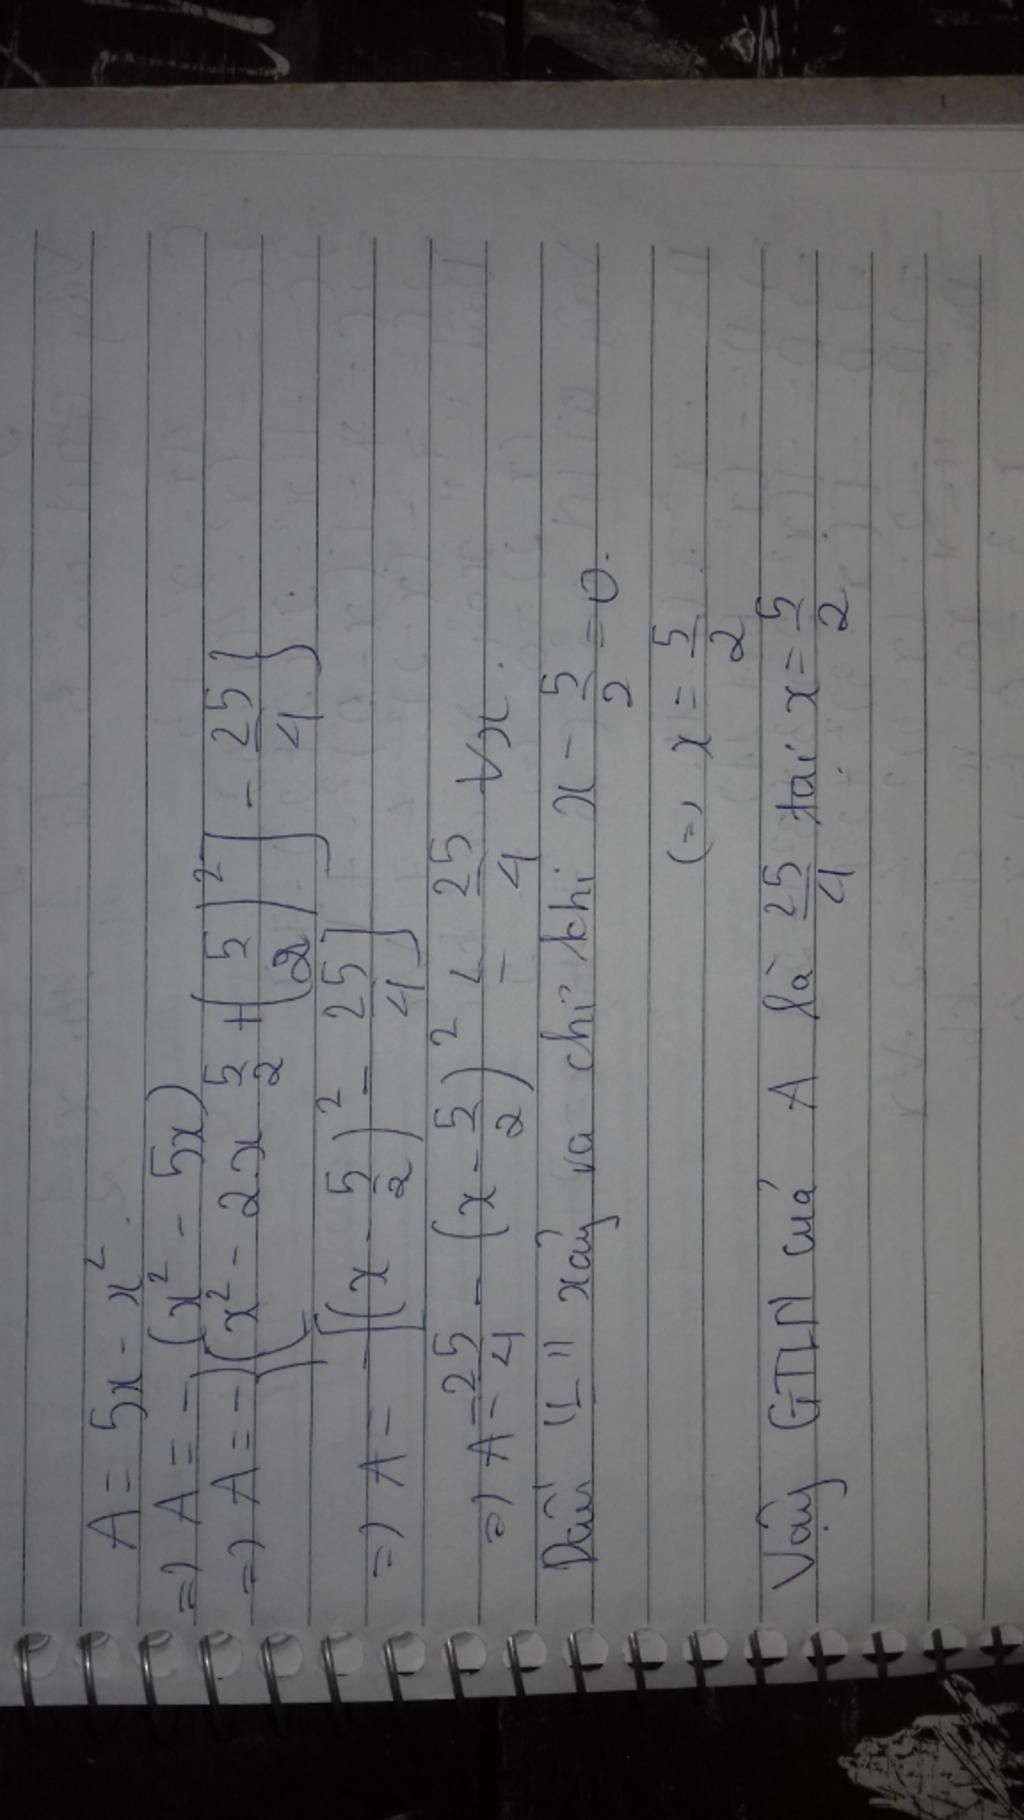 A = 5x - x²
=) A = - (x² - 5x)
=) A = - {[x² - 2x 5/2 + (5/2)²] - 25/4}
=) A = - [(x - 5/2)² - 25/4]
=) A = 25/4 - (x - 5/2)² ≤ 25/4 ∀x.
Dấu "=" xảy ra chỉ khi x - 5/2 = 0.
(=) x = 5/2
Vậy GTLN của A là 25/4 tại x = 5/2